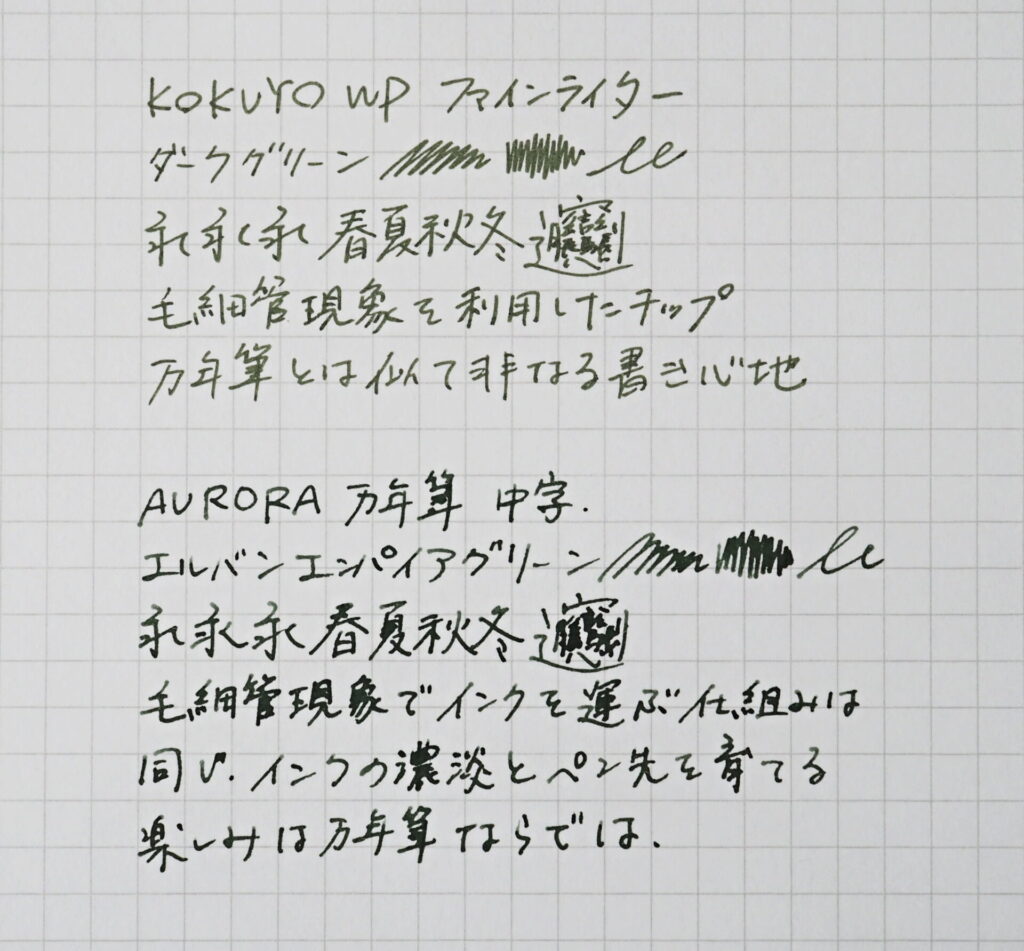 KOKUYO WP ファインライター
ダークグリーン
永永永 春夏秋冬𰻞
毛細管現象を利用したチップ
万年筆とは似て非なる書き心地
AURORA 万年筆 中字.
エルバンエンパイアグリーン
永永永春夏秋冬𰻞
毛細管現象でインクを運ぶ仕組みは
同じ.インクの濃淡とペン先を育てる
楽しみは万年筆ならでは.